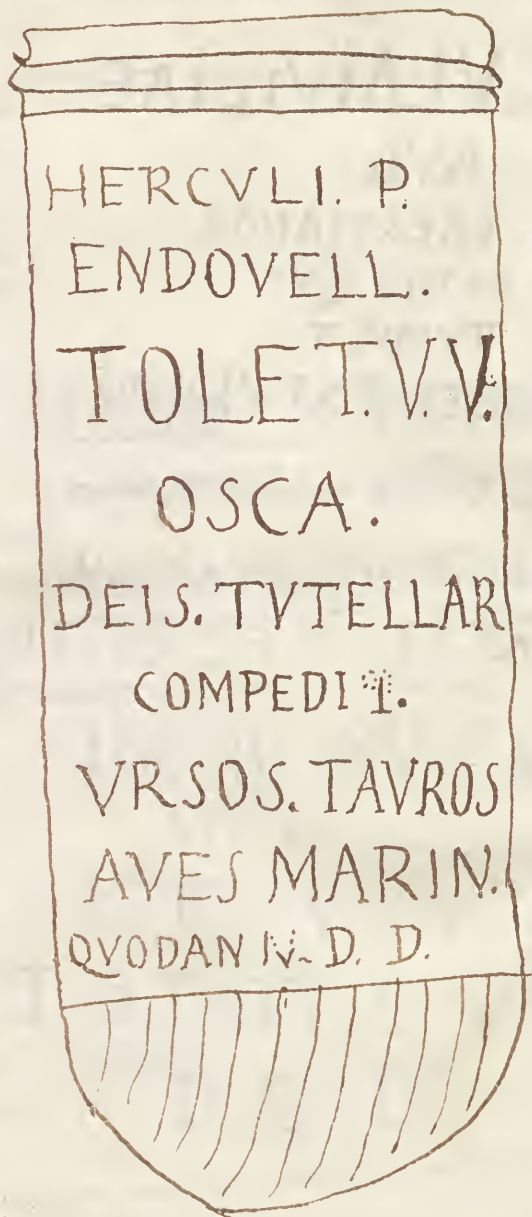 HERCVLI. P.
ENDOVELL.
TOLET. V. V.
OSCA.
DEIS. TVTELLAR
COMPEDIT.
VRSOS. TAVROS
AVES MARIN.
QVODAN IV. D. D.